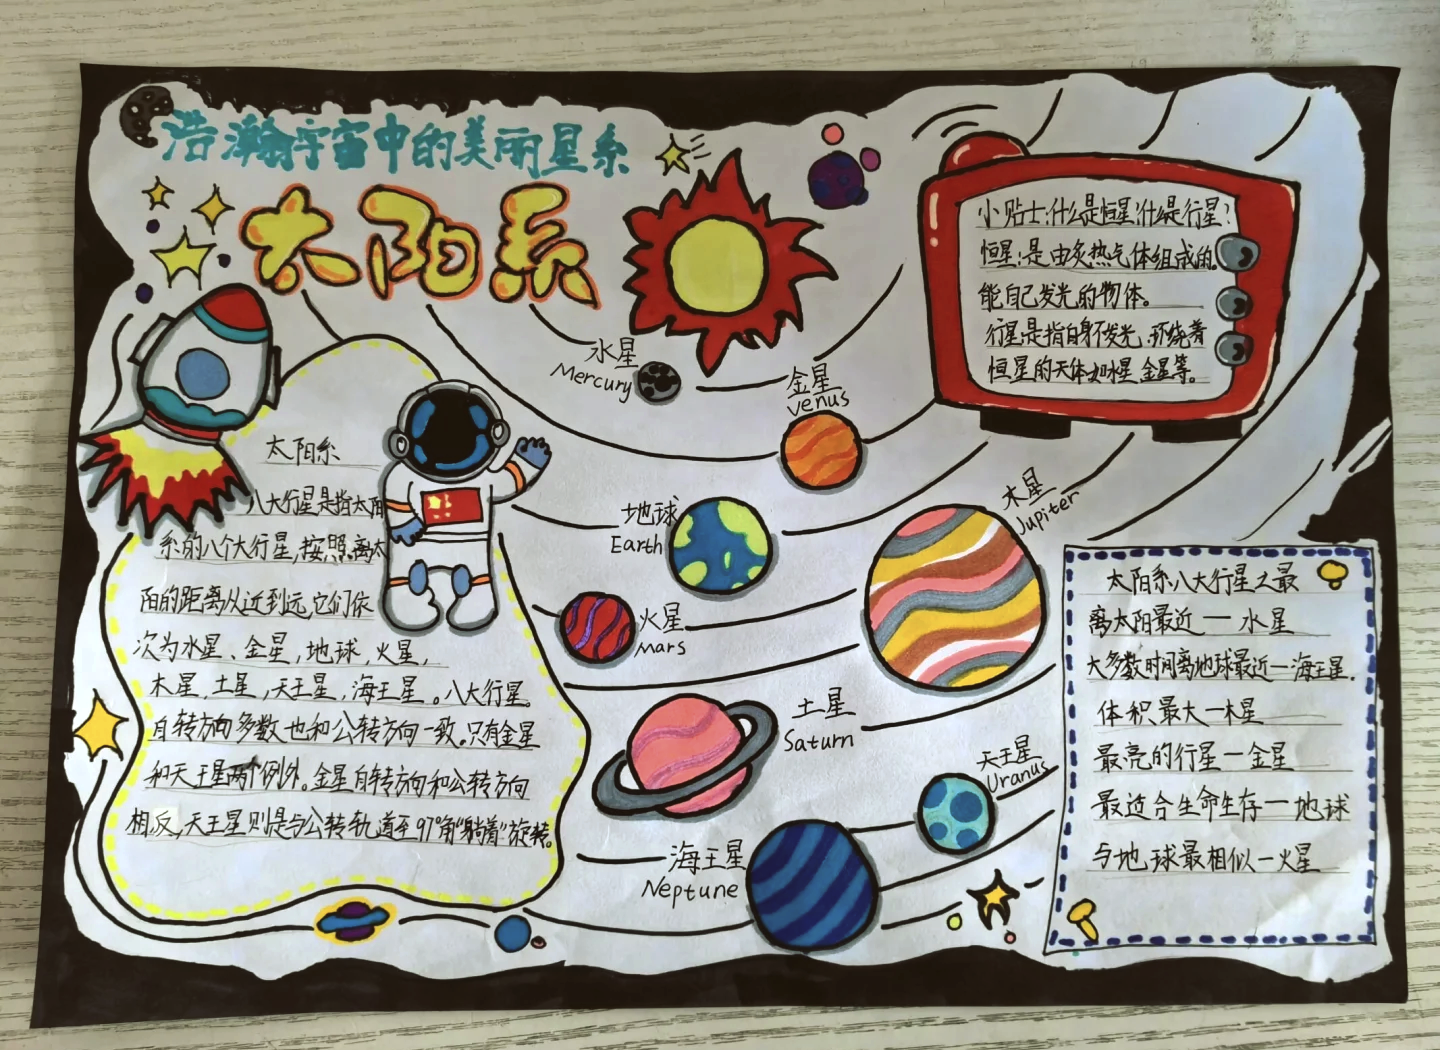 浩瀚宇宙中的美丽星系
太阳系
小贴士:什么是恒星?什么是行星?
恒星:是由炙热气体组成的。
能自己发光的物体。
行星:是指自身不发光,环绕着
恒星的天体如水星金星等。
水星
Mercury
金星
venus
地球
Earth
火星
Mars
木星
Jupiter
土星
Saturn
天王星
Uranus
海王星
Neptune
太阳系
八大行星是指太阳
系的八个大行星,按照离太
阳的距离从近到远,它们依
次为水星、金星,地球,火星,
木星,土星,天王星,海王星。八大行星。
自转方向多数也和公转方向一致。只有金星
和天王星两个例外。金星自转方向和公转方向
相反,天王星则是与公转轨道呈97°角“躺着”旋转。
太阳系八大行星之最
离太阳最近—水星
大多数时间离地球最近—海王星.
体积最大—木星
最亮的行星—金星
最适合生命生存—地球
与地球最相似—火星